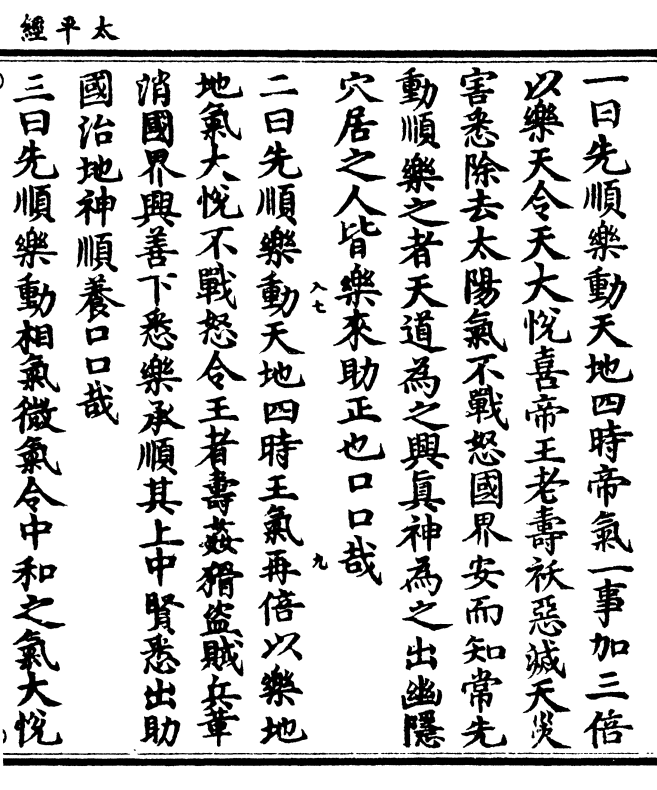 太平經
一曰先順樂動天地四時帝氣一事加三倍
以樂天令天大悅喜帝王老壽祅惡滅天災
害悉除去太陽氣不戰怒國界安而知常先
動順樂之者天道為之興真神為之出幽隱
穴居之人皆樂來助正也口口哉
八七
九
二曰先順樂動天地四時王氣再倍以樂地
地氣大悅不戰怒令王者壽姦猾盜賊兵革
消國界興善下悉樂承順其上中賢悉出助
國治地神順養口口哉
三曰先順樂動相氣微氣令中和之氣大悅